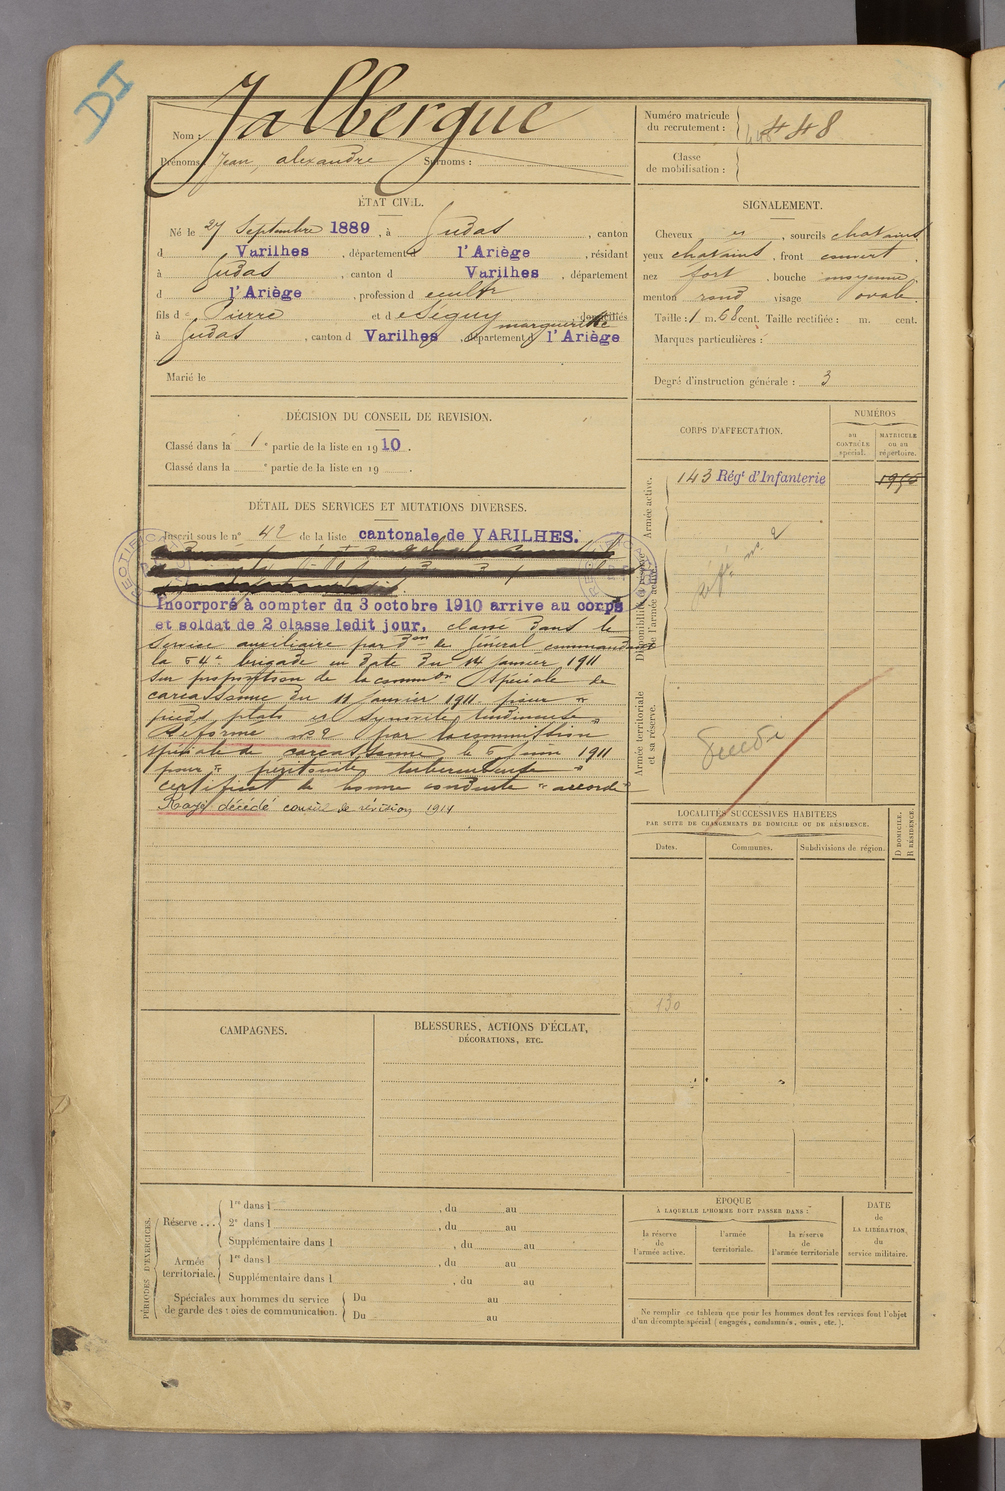 DI
Nom : Jalbergue
Prénoms : Jean, alexandre Surnoms :
Numéro matricule du recrutement : 448
Classe de mobilisation :
ÉTAT CIVIL.
Né le 27 Septembre 1889, à Gudas, canton
d Varilhes, département d l'Ariège, résidant
à Gudas, canton d Varilhes, département
d l'Ariège, profession d
fils d Pierre et d e Séguy marguerite domiciliés
à Gudas, canton d Varilhes, département d l'Ariège
Marié le
SIGNALEMENT.
Cheveux , sourcils chatains
yeux chatains, front couvert,
nez fort, bouche moyenne,
menton rond visage ovale.
Taille : 1 m. 68 cent. Taille rectifiée : m. cent.
Marques particulières :
Degré d'instruction générale : 3
DÉCISION DU CONSEIL DE REVISION.
Classé dans la 1e partie de la liste en 1910.
Classé dans la e partie de la liste en 19 .
CORPS D'AFFECTATION.
NUMÉROS
au CONTRÔLE spécial.
MATRICULE ou au répertoire.
Armée active.
143 Régt d'Infanterie
Disponibilité et réserve de l'armée active.
réf. no. 2
Armée territoriale et sa réserve.
DÉTAIL DES SERVICES ET MUTATIONS DIVERSES.
Inscrit sous le n° 42 de la liste cantonale de VARILHES.
Incorporé à compter du 3 octobre 1910 arrive au corps
et soldat de 2 classe ledit jour, classé dans le
service auxiliaire par Don de Général commandant
la 64e brigade en date du 14 Janvier 1911
sur proposition de la common Spéciale de
carcassonne du 11 Janvier 1911 pour "
pieds plats et synovite tendineuse "
Réformé no 2 par la commission
spéciale de carcassonne le 6 Juin 1911
pour " péritonite tuberculeuse "
certificat de bonne conduite " accordé "
Rayé décédé conseil de révision 1914
LOCALITÉS SUCCESSIVES HABITÉES
PAR SUITE DE CHANGEMENTS DE DOMICILE OU DE RÉSIDENCE.
Dates. Communes. Subdivisions de région. D DOMICILE. R RÉSIDENCE.
130
CAMPAGNES.
BLESSURES, ACTIONS D'ÉCLAT,
DÉCORATIONS, ETC.
PÉRIODES D'EXERCICES.
Réserve ...
1re dans l , du au
2e dans l , du au
Supplémentaire dans l , du au
Armée territoriale.
1re dans l , du au
Supplémentaire dans l , du au
Spéciales aux hommes du service de garde des voies de communication.
Du au
Du au
ÉPOQUE
À LAQUELLE L'HOMME DOIT PASSER DANS :
la réserve de l'armée active.
l'armée territoriale.
la réserve de l'armée territoriale
DATE de LA LIBÉRATION, du service militaire.
Ne remplir ce tableau que pour les hommes dont les services font l'objet
d'un décompte spécial (engagés, condamnés, omis, etc.).